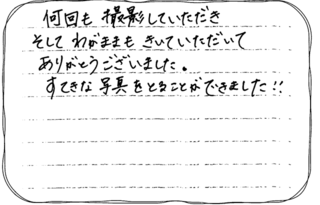 何回も撮影していただき
そしてわがままもきいていただいて
ありがとうございました。
すてきな写真をとることができました!!